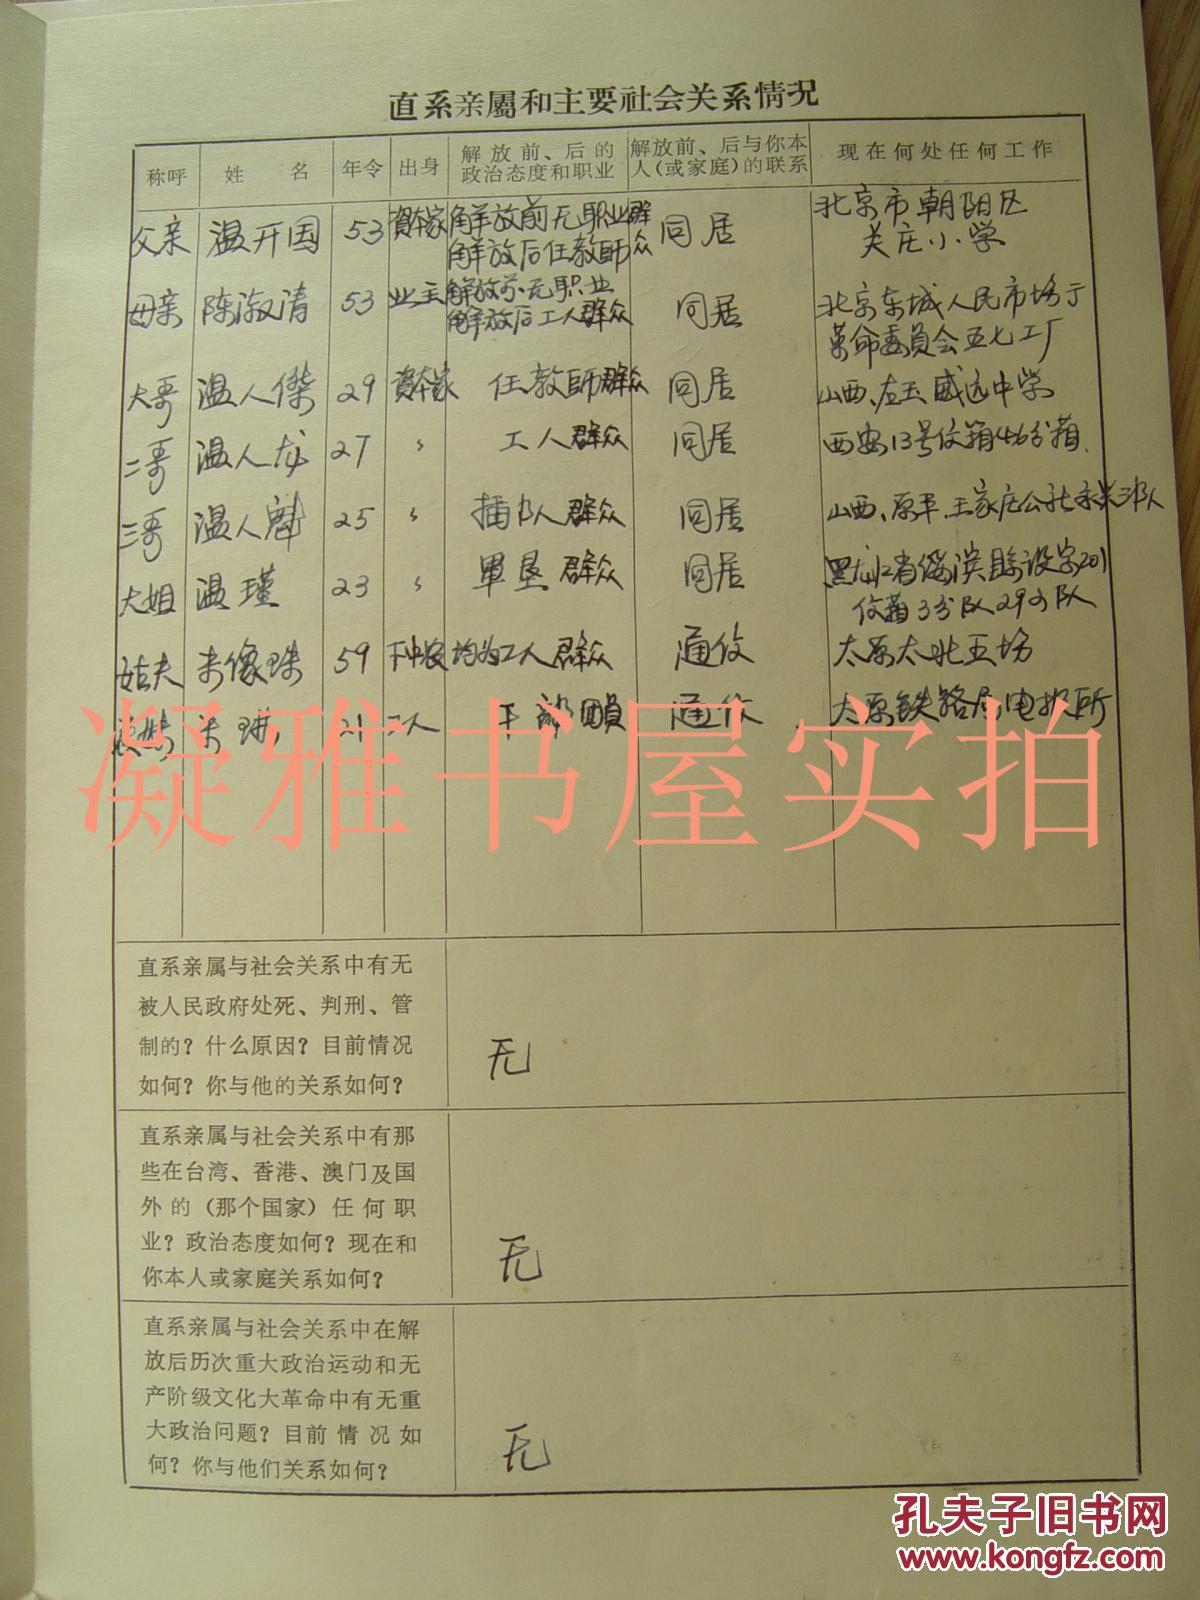 直系亲属和主要社会关系情况
称呼 姓 名 年令 出身 解放前、后的政治态度和职业 解放前、后与你本人(或家庭)的联系 现在何处任何工作
父亲 温开国 53 资本家 解放前无职业群众 解放后任教師 同居 北京市朝阳区关庄小学
母亲 陈淑清 53 业主 解放前无职业 解放后工人群众 同居 北京东城人民市场革命委員会五七工厂
大哥 温人傑 29 资本家 任教師群众 同居 山西、左玉威远中学
二哥 温人龙 27 〃 工人群众 同居 西安13号信箱46分箱
三哥 温人 25 〃 插队群众 同居 山西、原平、王家庄公社
大姐 温瑾 23 〃 軍垦群众 同居 黑龙江省
信箱3分队29分队
姑夫 59 下中农 均为工人群众 通信 太原太北
21 工人 干部團員 通信 太原铁路局电报所
凝雅书屋实拍
直系亲属与社会关系中有无
被人民政府处死、判刑、管
制的？什么原因？目前情况
如何？你与他的关系如何？
无
直系亲属与社会关系中有那
些在台湾、香港、澳门及国
外的（那个国家）任何职
业？政治态度如何？现在和
你本人或家庭关系如何？
无
直系亲属与社会关系中在解
放后历次重大政治运动和无
产阶级文化大革命中有无重
大政治问题？目前情况如
何？你与他们关系如何？
无
孔夫子旧书网
www.kongfz.com